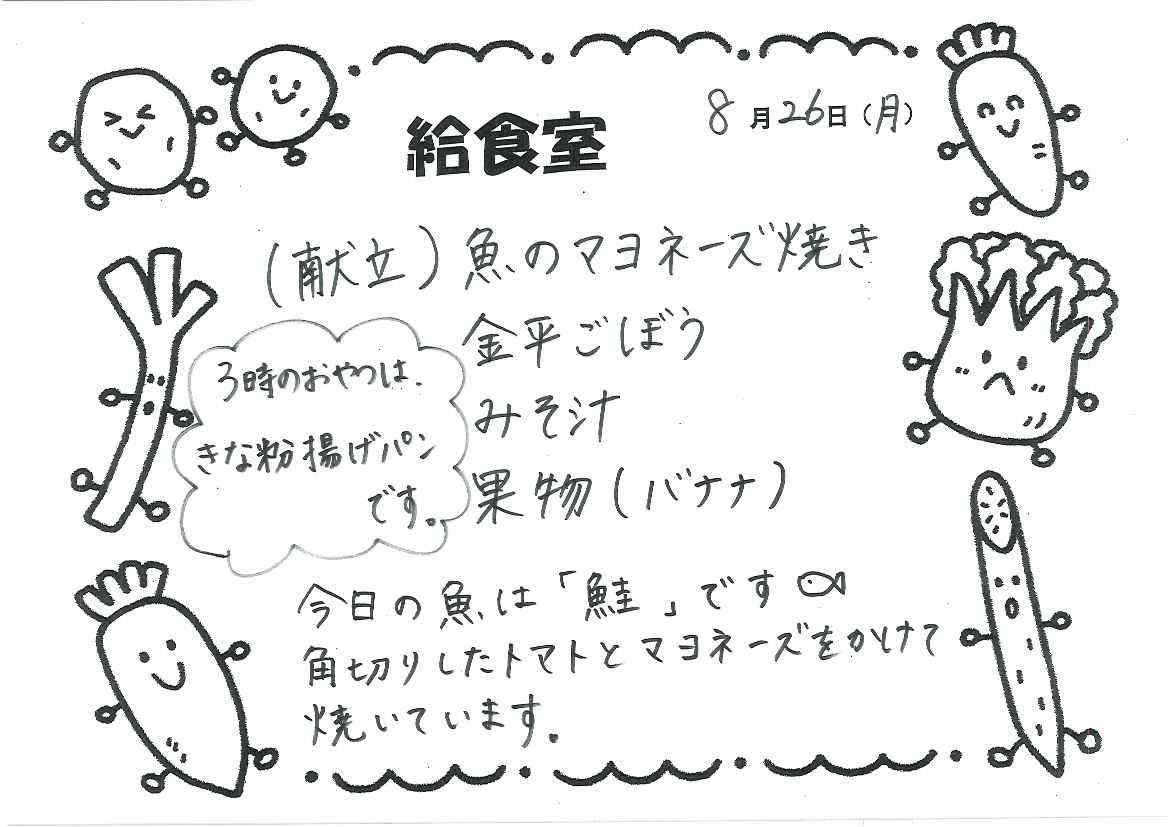 給食室
8月26日(月)
(献立)魚のマヨネーズ焼き
金平ごぼう
みそ汁
果物(バナナ)
3時のおやつは、
きな粉揚げパン
です。
今日の魚は「鮭」です
角切りしたトマトとマヨネーズをかけて
焼いています。